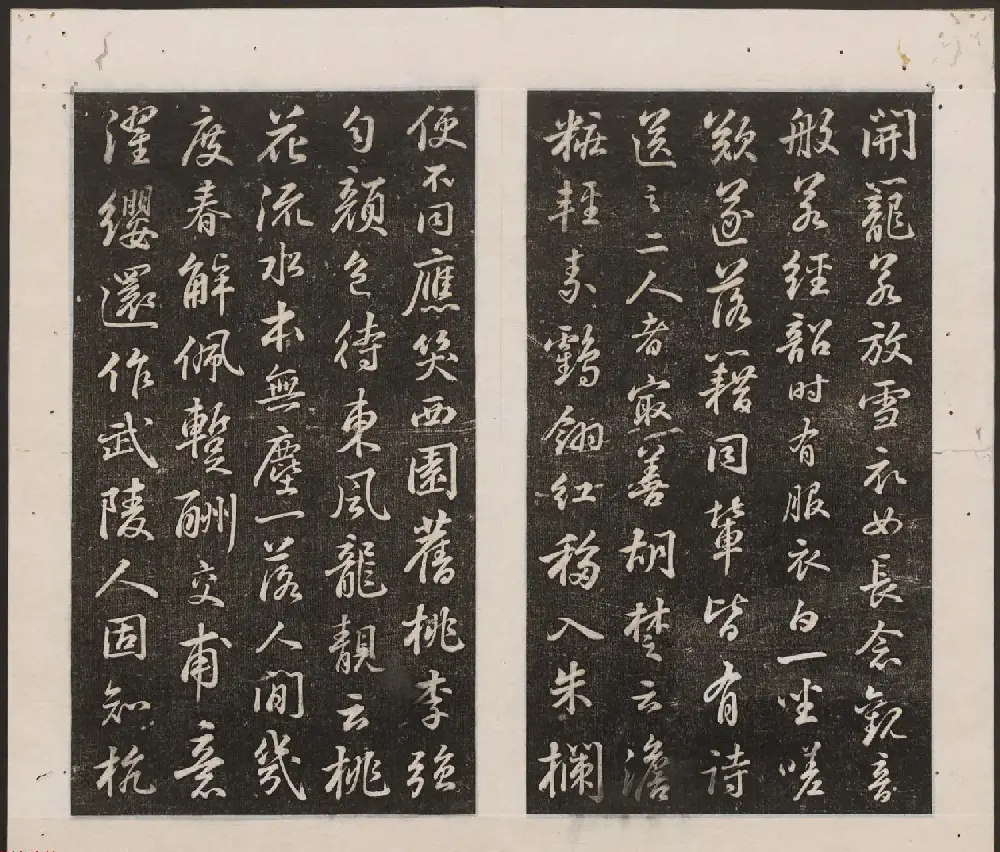 開籠若放雪衣女長念觀音
般若經韶時有服衣白一坐嗟
歎遂落籍同輩皆有詩
送之二人者最善胡楚云澹
粧輕素鶴翎紅移入朱欄
便不同應笑西園舊桃李強
勻顏色待東風龍靚云桃
花流水本無塵一落人間幾
度春解佩蹔酬交甫意
濯纓還作武陵人固知杭